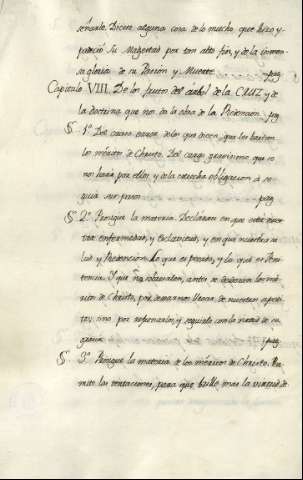 señarlo. Dicese alguna cosa de lo mucho, que hizo y
padeció Su Magestad por tan alto fin, y de la inmen
sa gloria de su Pasion y Muerte. pag
Capitulo VIII. De los frutos del arbol de la CRUZ y de
la doctrina que nos da la obra de la Redencion. pag
§. 1º Del vano error de los que dicen, que les bastan
los meritos de Christo. Del cargo gravisimo que se
nos hará por ellos, y de la estrecha obligacion á se
guir sus pasos pag
§. 2º Prosigue la materia. Declarase en que está nues
tra enfermedad, y esclavitud, y en que nuestra sa
lud y Redencion. Lo que es pecado, y lo que es Peni
tencia. Y que no relaxados, antes se
ritos de Christo, por dexarnos llevar de nuestros apeti
tos; sino por refrenarlos, y seguirlo con la virtud de su
gracia pag
§. 3º Prosigue la materia de los meritos de Christo. Per
mite las tentaciones, para que brille mas la virtud de